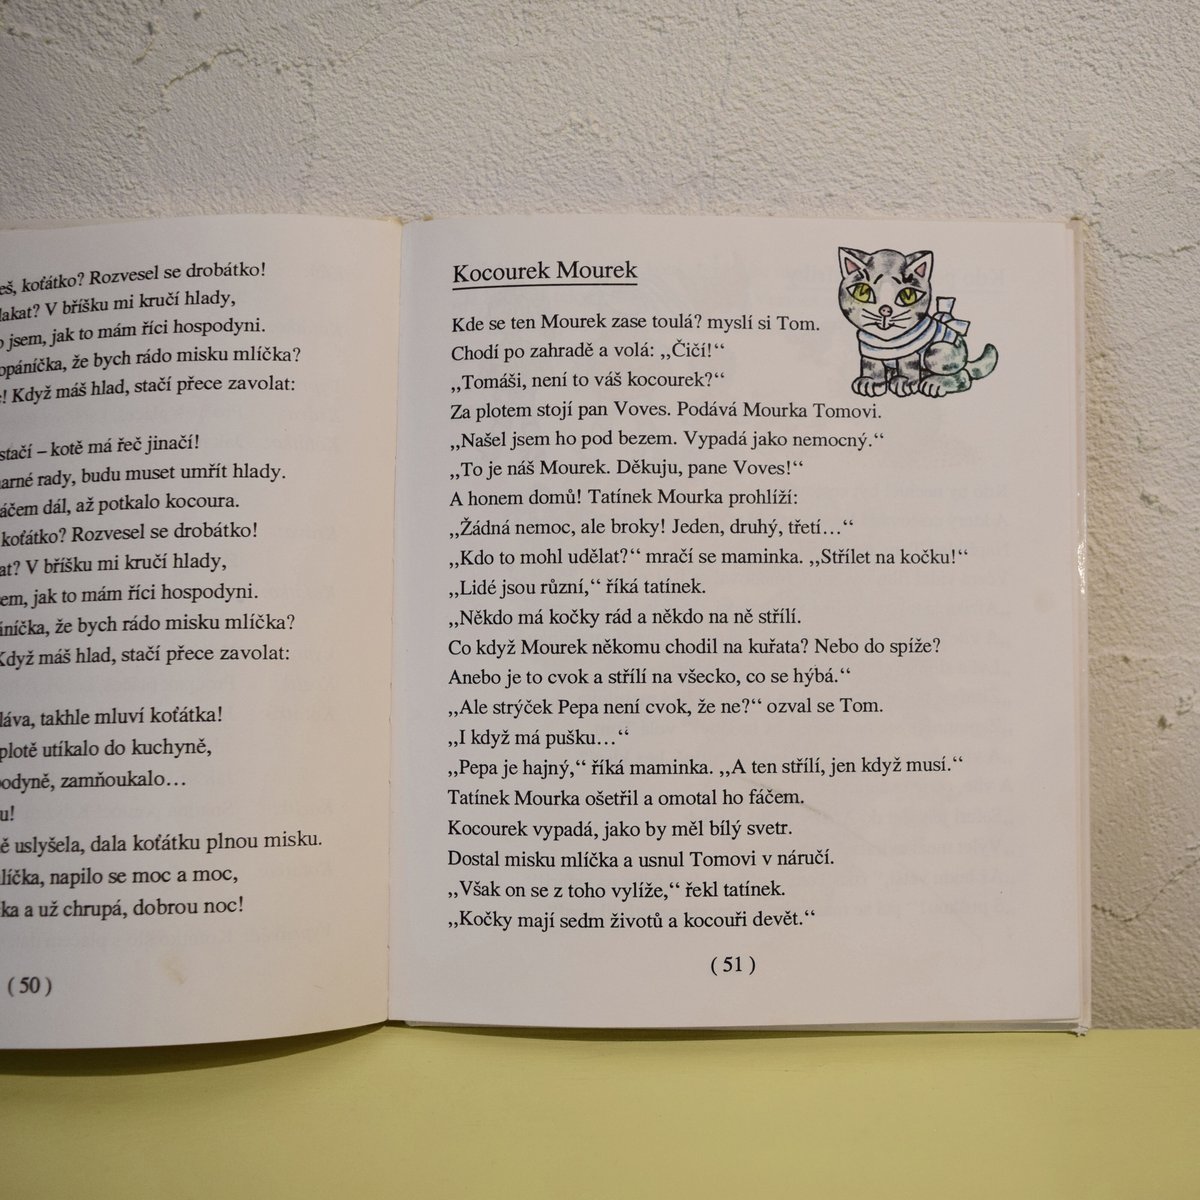 koťátko? Rozvesel se drobátko!
V bříšku mi kručí hlady,
jsem, jak to mám říci hospodyni.
že bych rádo misku mlíčka?
Když máš hlad, stačí přece zavolat:
stačí – kotě má řeč jinačí!
rady, budu muset umřít hlady.
dál, až potkalo kocoura.
koťátko? Rozvesel se drobátko!
V bříšku mi kručí hlady,
jak to mám říci hospodyni.
že bych rádo misku mlíčka?
Když máš hlad, stačí přece zavolat:
takhle mluví koťátka!
plotě utíkalo do kuchyně,
zamňoukalo…
uslyšela, dala koťátku plnou misku.
napilo se moc a moc,
a už chrupá, dobrou noc!
( 50 )
Kocourek Mourek
Kde se ten Mourek zase toulá? myslí si Tom.
Chodí po zahradě a volá: „Čičí!“
„Tomáši, není to váš kocourek?“
Za plotem stojí pan Voves. Podává Mourka Tomovi.
„Našel jsem ho pod bezem. Vypadá jako nemocný.“
„To je náš Mourek. Děkuju, pane Voves!“
A honem domů! Tatínek Mourka prohlíží:
„Žádná nemoc, ale broky! Jeden, druhý, třetí…“
„Kdo to mohl udělat?“ mračí se maminka. „Střílet na kočku!“
„Lidé jsou různí,“ říká tatínek.
„Někdo má kočky rád a někdo na ně střílí.
Co když Mourek někomu chodil na kuřata? Nebo do spíže?
Anebo je to cvok a střílí na všecko, co se hýbá.“
„Ale strýček Pepa není cvok, že ne?“ ozval se Tom.
„I když má pušku…“
„Pepa je hajný,“ říká maminka. „A ten střílí, jen když musí.“
Tatínek Mourka ošetřil a omotal ho fáčem.
Kocourek vypadá, jako by měl bílý svetr.
Dostal misku mlíčka a usnul Tomovi v náručí.
„Však on se z toho vylíže,“ řekl tatínek.
„Kočky mají sedm životů a kocouři devět.“
( 51 )